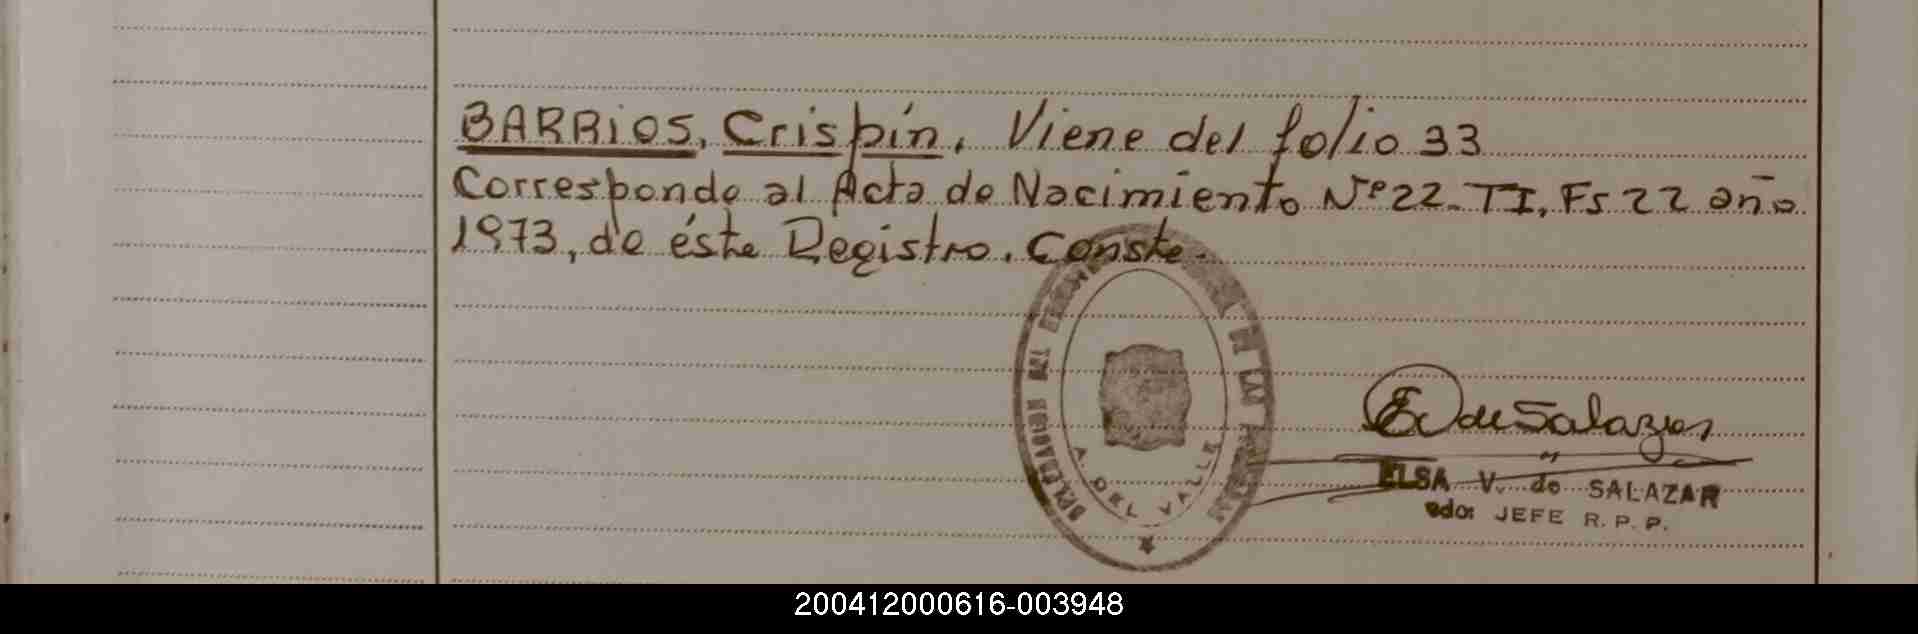 BARRiOS, Crispín. Viene del folio 33
Corresponde al Acta de Nacimiento Nº22. TI, Fs 22 año
1973, de éste Registro. Conste.
A. DEL VALLE
E V de Salazar
ELSA V. de SALAZAR
edo: JEFE R. P. P.
200412000616-003948